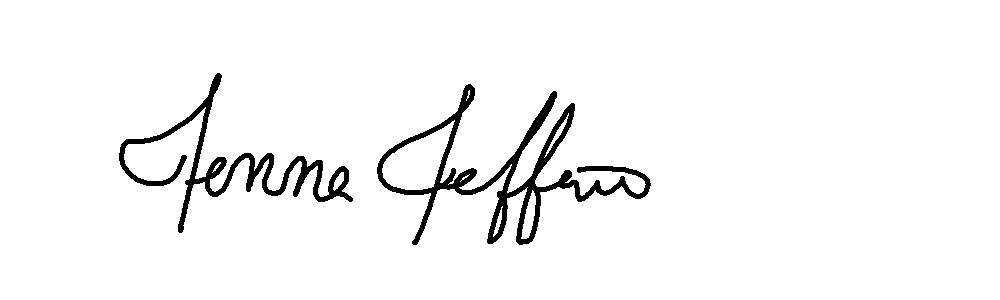 Jenne Jeffers